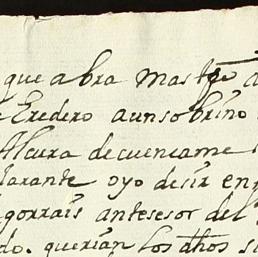 que abra mas tpo a
Eredero a un sobrino
Alcura de cuencame
larante oyo desir en
gorrais antesesor del
do. querian los dhos s